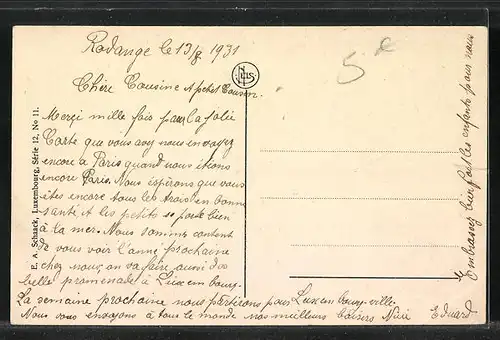 Rodange le 13/8 1931
Chère Cousine & petit Cousin.
Merçi mille fois pour la jolie
Carte que vous avez nous envoyez
encore à Paris quand nous étions
encore Paris. Nous espérons que vous
êtes encore tous les trois en bonne
santé et les petits se porte bien
à la mer. Nous sommes content
de vous voir l'anné prochaine
chez nous on va faire aussi des
belle promenade à Luxembourg.
La semaine prochaine nous partirons pour Luxembourg-ville.
Nous vous envoyons à tous le monde nos meilleurs baisers
Eduard
Embrassez bien fort les enfants pour nous
E. A. Schaack, Luxembourg, Série 12, No 11.
NELS
5